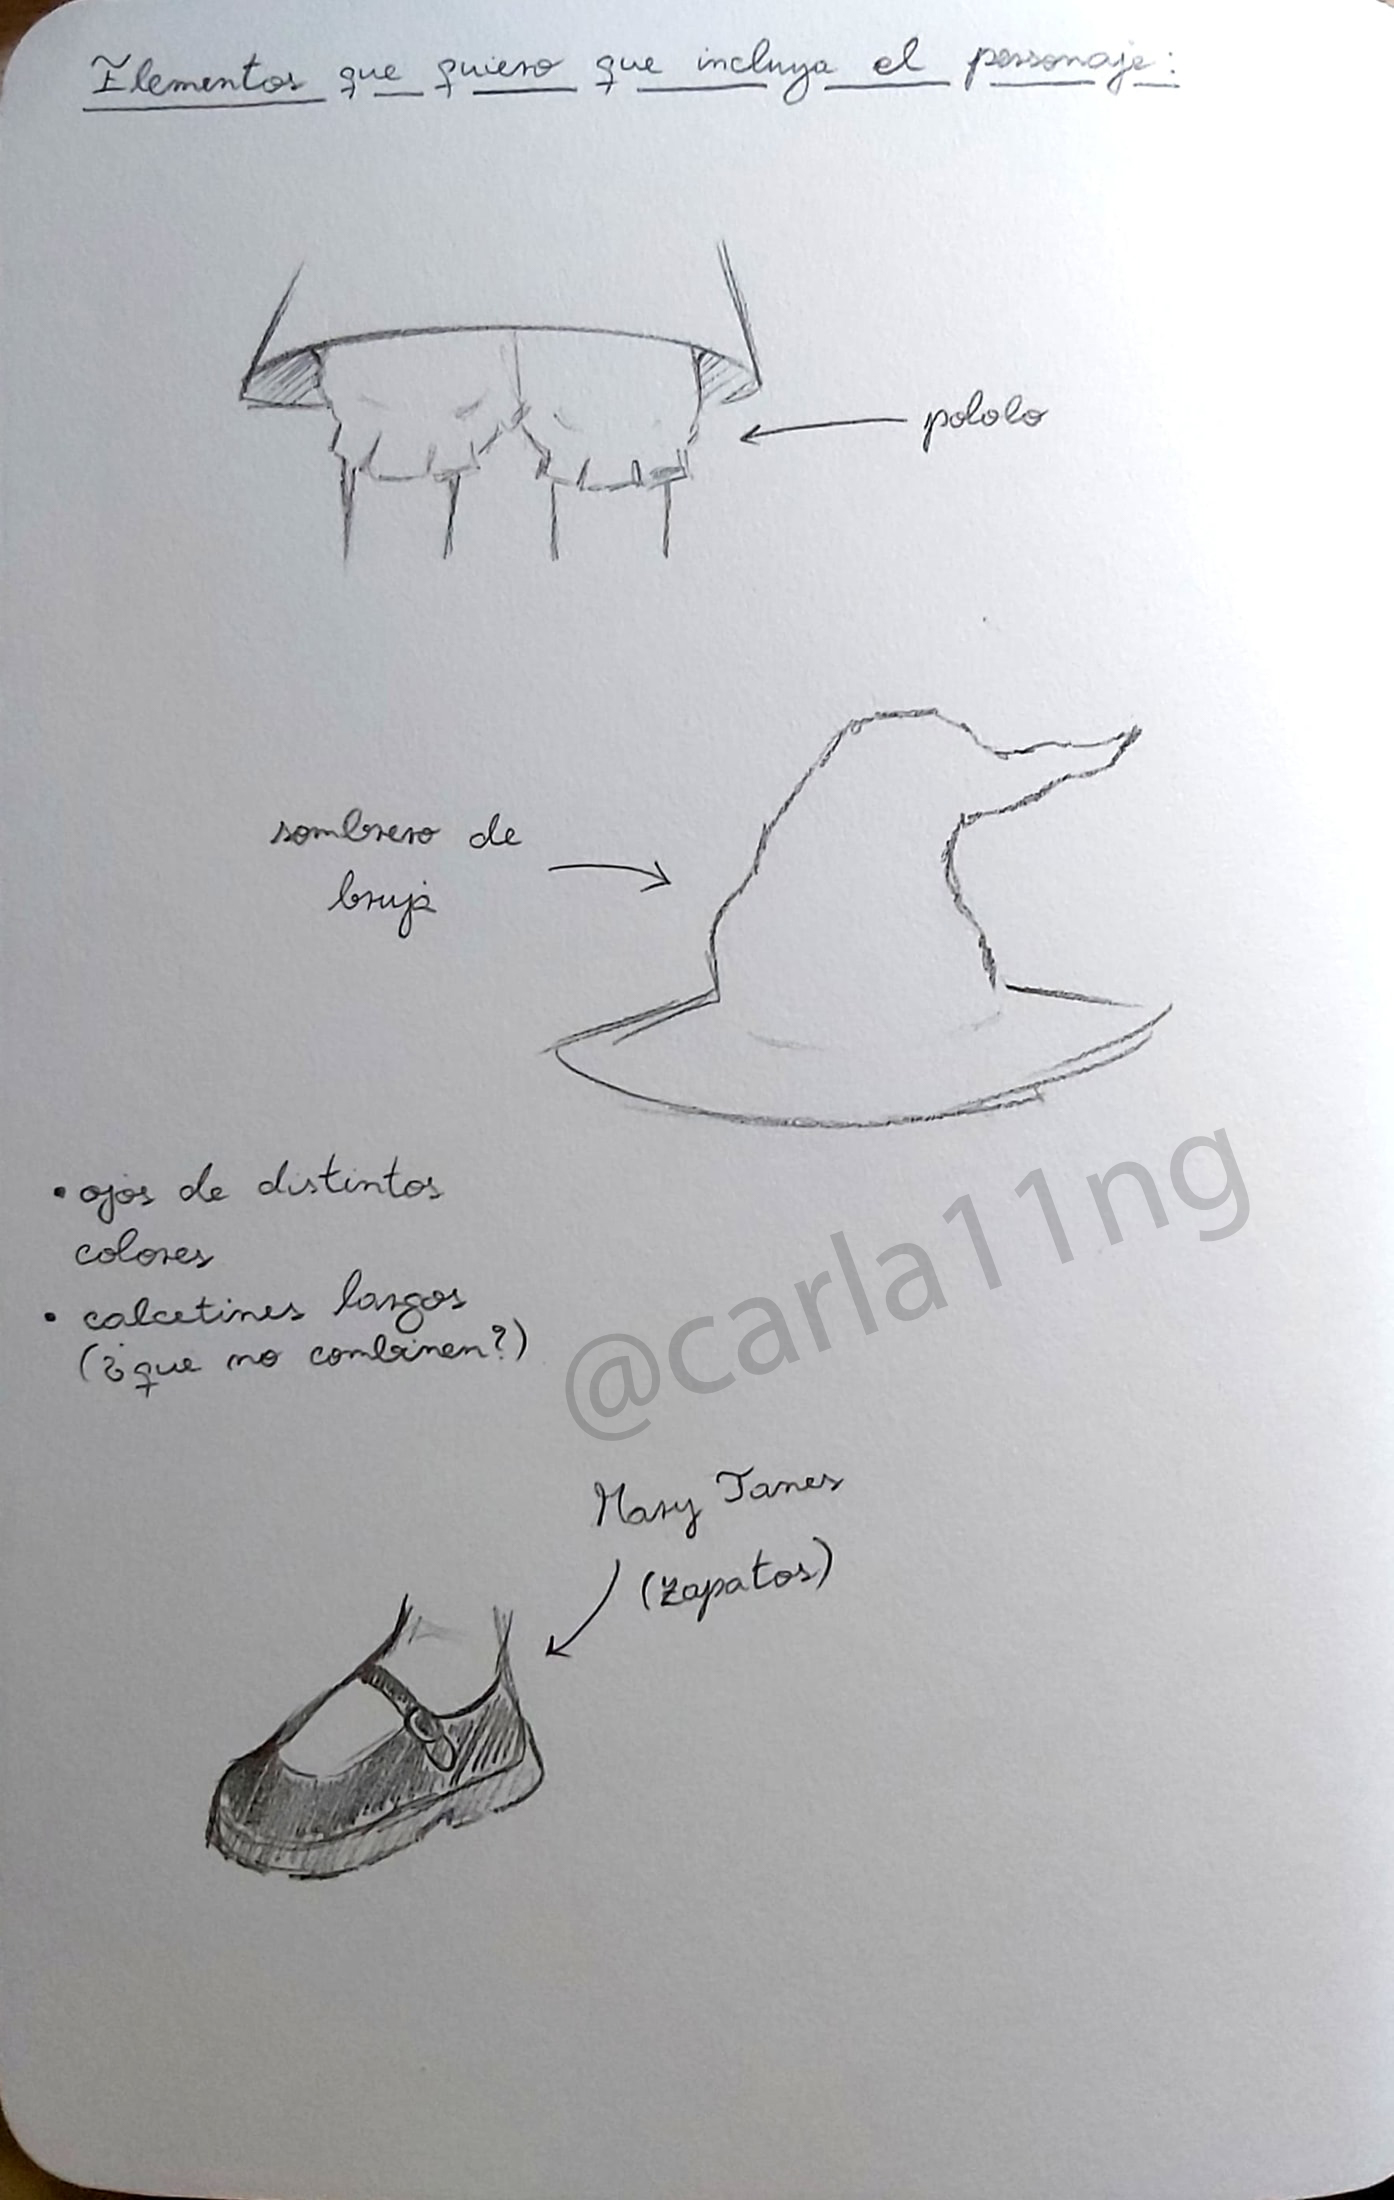 Elementos que quiero que incluya el personaje:
pololo
sombrero de
bruja
• ojos de distintos
colores
• calcetines largos
(¿que no combinen?)
@carla11ng
Mary Janes
(zapatos)